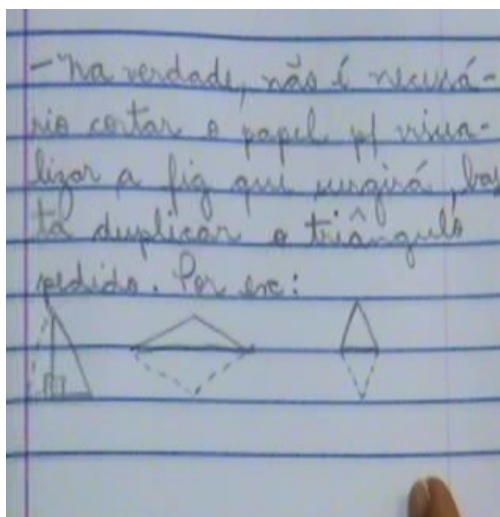 - Na verdade, não é necessá-
rio cortar o papel p/ visua-
lizar a fig que surgirá, bas
ta duplicar o triângulo
pedido. Por exe: